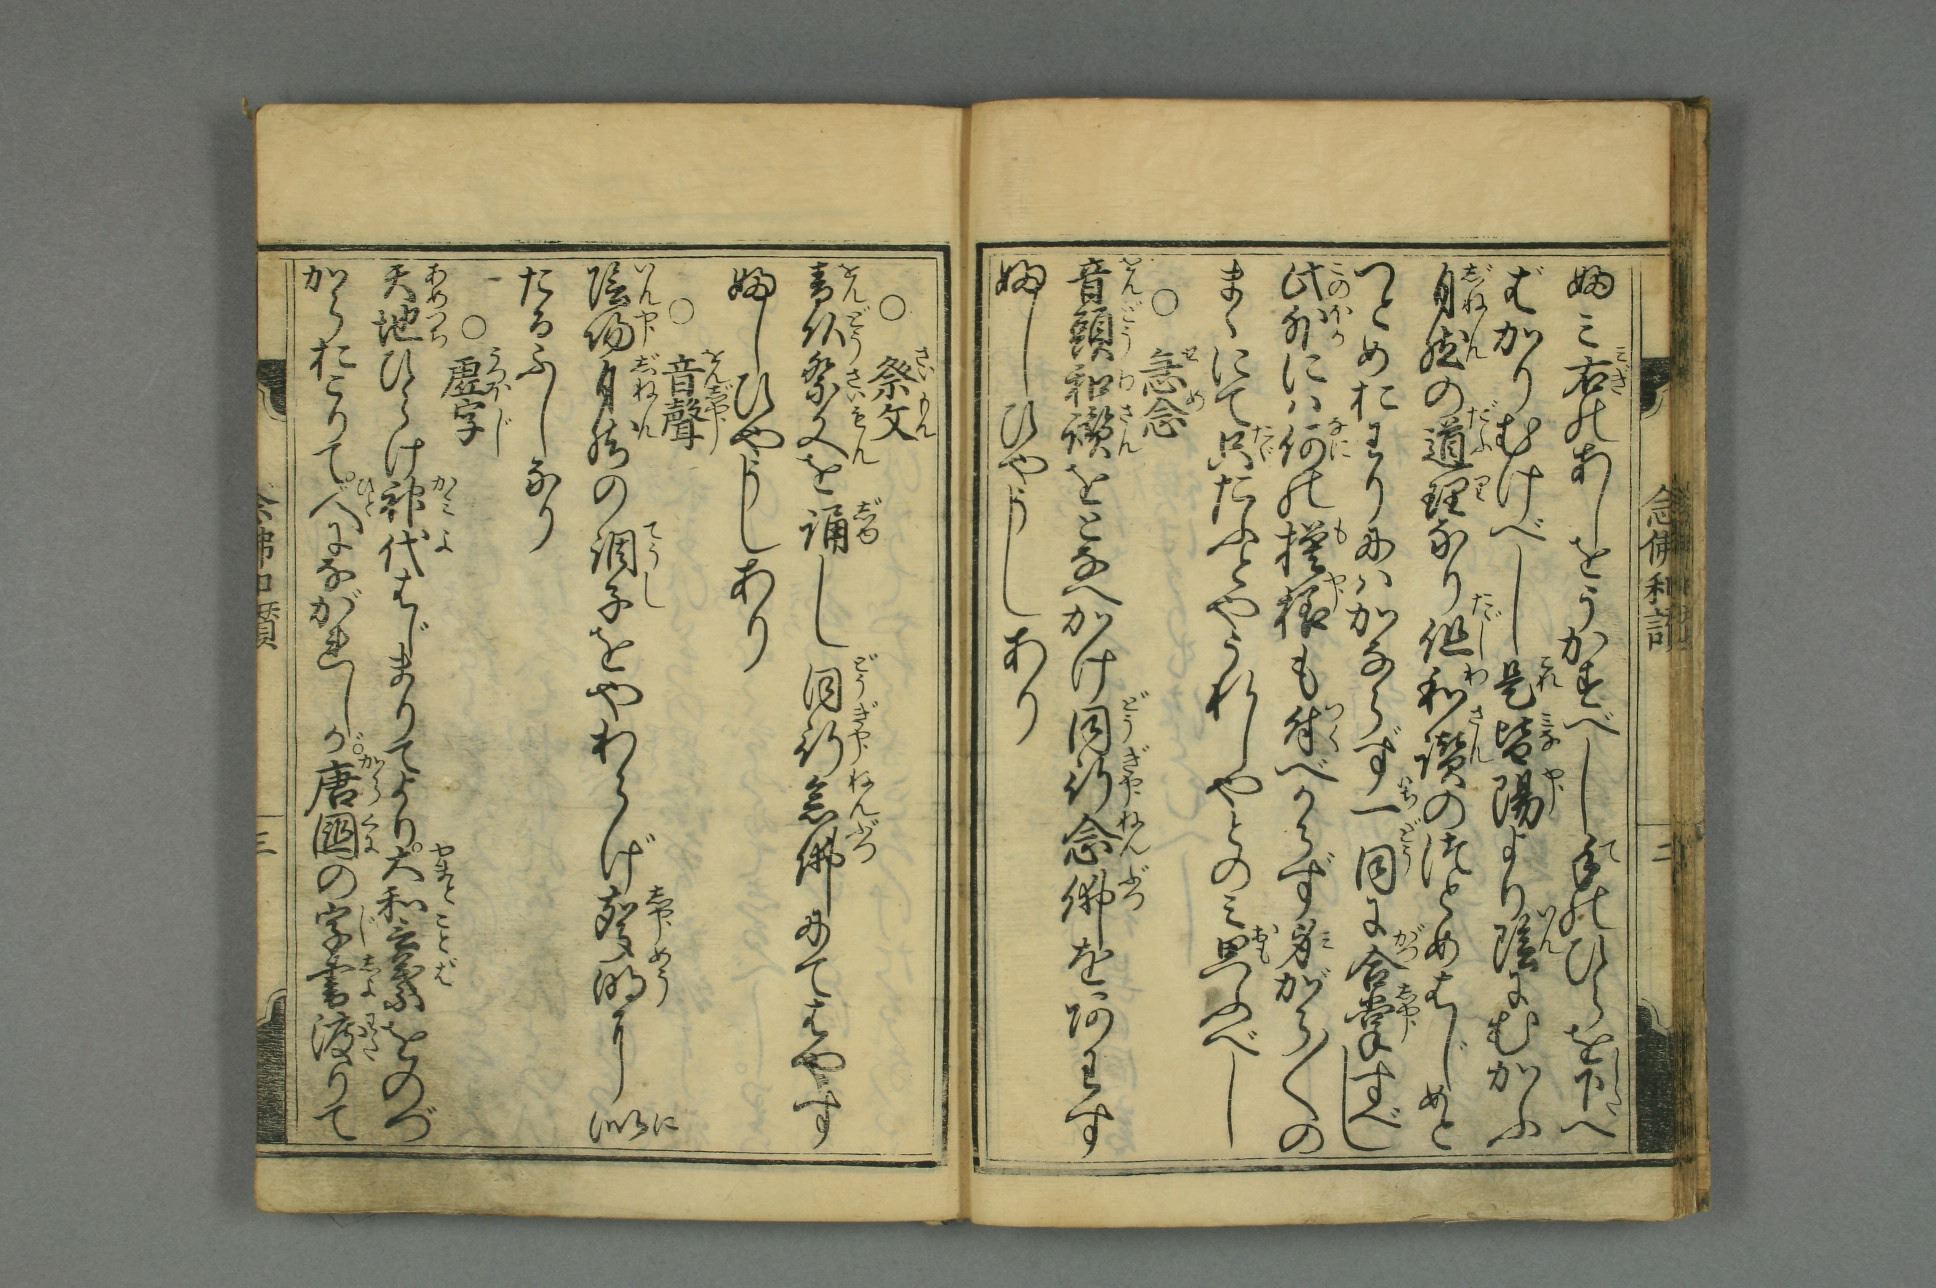 ふみ右のあしをうかすべし手のひらを下へ
むかりむけべし是皆陽より陰にむかふ
自然の道理なり但和讃のつとめはじめと
つとめおわりにハかならず一同に合掌すべし
此外にハ何の模様も付べからず身がら〳〵の
まゝにて只たふとやうれしやとのミ思ふべし
○急念
音頭和讃をとなへかけ同行念佛を行わす
ふしひやうしあり
○祭文
音頭祭文を誦し同行念佛にてはやす
ふしひやうしあり
○音聲
陰陽自然の調子をやわらげ聲明に似
たるふしなり
○虚字
天地ひらけ神代はじまりてより大和言葉をのづ
からおこりて人になかれしが唐國の字書渡りて
念佛和讃
二
念佛和讃
三